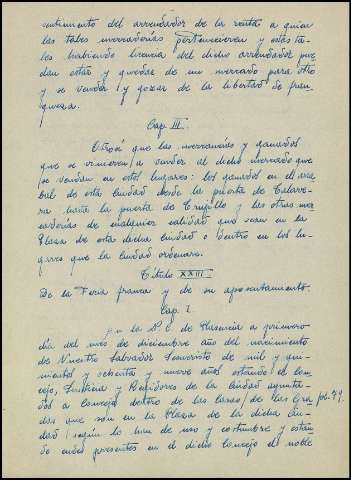 sentimiento del arrendador de la renta a quien
las tales mercaderias pertenecieren y estas ta-
les habiendo licencia del dicho arrendador pue
dan estar y quedar de un mercado para otro
y se vender y gozar de la libertad de fran
queza.
Cap. III.
Otrosi que las mercancias y ganados
que se vinieren a vender al dicho mercado que
se vendan en estos lugares: los ganados en el arra
bal de esta ciudad desde la puerta de Talave-
ra hasta la puerta de Trujillo y las otras mer
caderias de cualquier calidad que sean en la
Plaza de esta dicha ciudad o dentro en los lu-
gares que la ciudad ordenare.
Titulo XXIII
De la Feria franca y de su aposentamiento.
Cap. I.
En la N. C. de Plasencia a primero
dia del mes de diciembre año del nacimiento
de Nuestro Salvador Jesucristo de mil y qui-
nientos y ochenta y nueve años estando el con
cejo, Justicia y Regidores de la Ciudad ayunta-
dos a Concejo dentro de las casas de las fol. 79.
das que son en la Plaza de la dicha Ciu-
dad según lo han de uso y costumbre y estan
do ende presentes en el dicho Concejo el noble